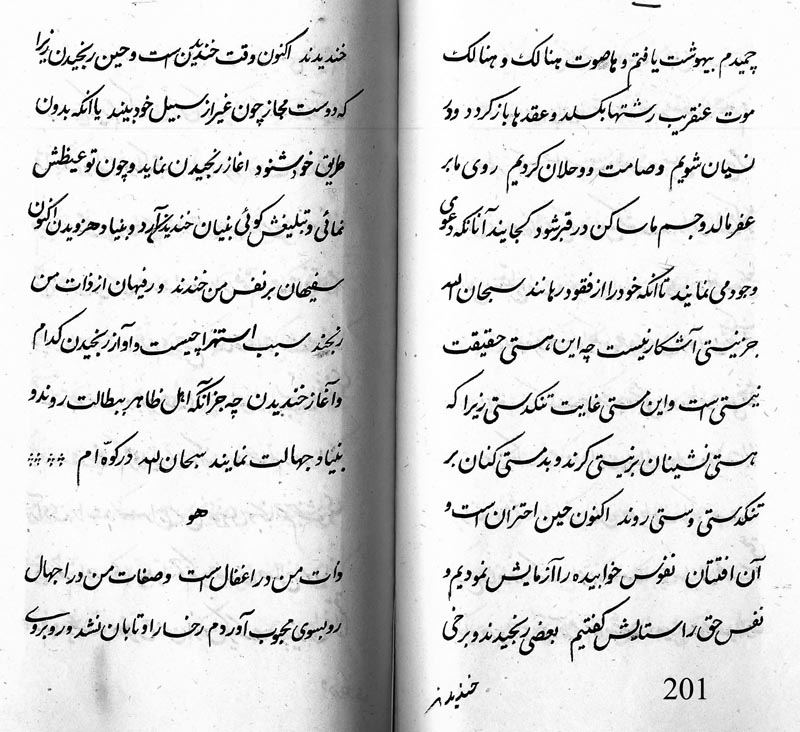 چمیدم بیهوشت یافتم و هاصوت هنالک و هنالک
موت عنقریب رشتها بکسلد و عقدها باز کردد ود
نسیان شویم وصامت ووحلان کردیم روی مابر
عفر مالد وجسم ماساکن در قبر شود کجایند آنانکه دعوی
وجود می نمایند تاانکه خود را از فقود رهانند سبحان الله
جز نیستی آشکار نیست چه این هستی حقیقت
نیستی است واین مستی غایت تنکدستی زیرا که
هستی نشینان بر نیستی کرند و بدمستی کنان بر
تنکدستی وستی روند اکنون حین احتزان است و
آن افتتان نفوس خوابیده را آزمایش نمودیم و
نفس حق را ستایش کفتیم بعضی رنجیدند و برخی
خندیدند
201
خندیدند اکنون وقت خندیدن است وحین رنجیدن زیرا
که دوست مجاز چون غیر از سبیل خود بیند یا آنکه بدون
طریق خود شنود اغاز رنجیدن نماید و چون تو عیظش
نمائی و تبلیغش کوئی بنیان خندیدن آرد و بنیاد هزویدن اکنون
سفیهان بر نفس من خندند و رفیهان از ذات من
رنجند سبب استهزا چیست و آواز رنجیدن کدام
و آغاز خندیدن چه جز انکه اهل ظاهر ببطالت روند و
بنیاد جهالت نمایند سبحان الله در کوه ام
هو
ذات من در اغفال است وصفات من در اجهال
رو بسوی محبوب آوردم رخسار او تابان نشد و روبروی